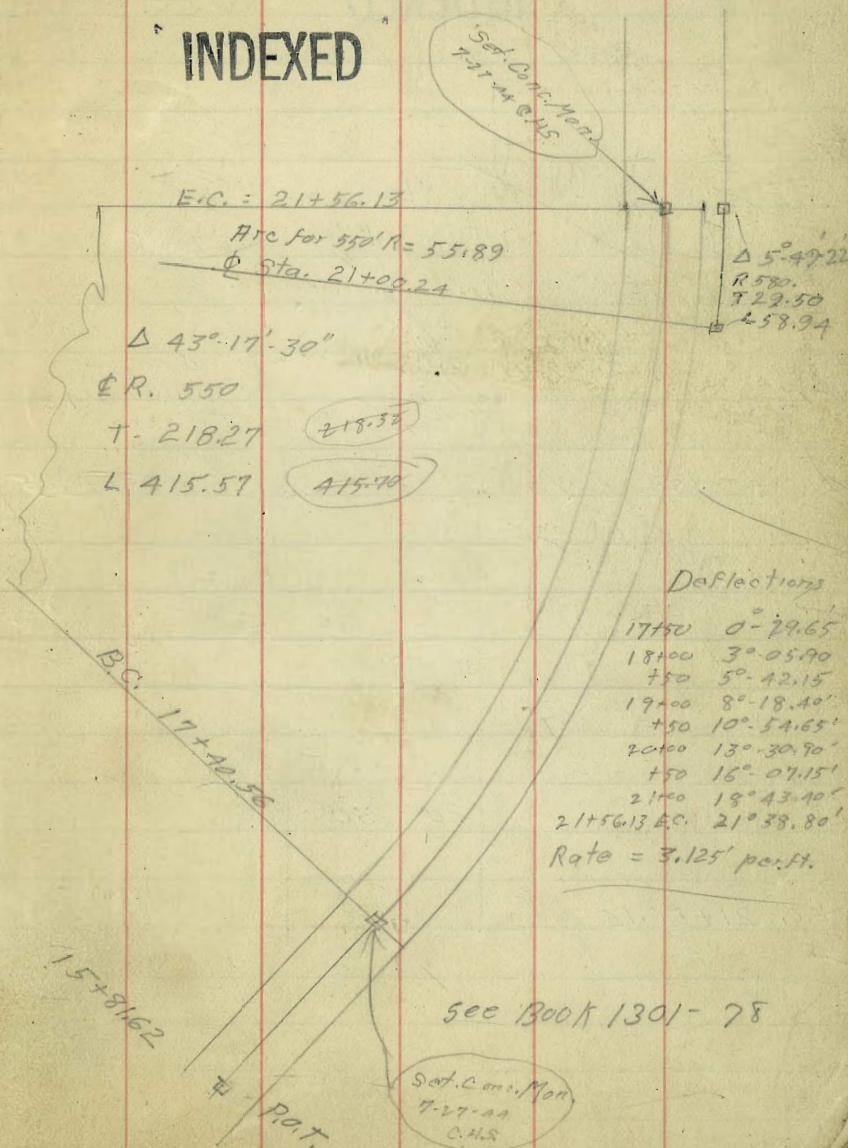 INDEXED
Set. Conc. Mon.
7-27-44 C.H.S.
E.C. = 21+56.13
Arc for 550' R = 55.89
℄ Sta. 21+00.24
Δ 5°-49'-22"
R 580.
T 29.50
L 58.94
Δ 43°-17'-30"
℄ R. 550
T- 218.27 218.35
L 415.57 415.70
Deflections
17+50 0°-29.65'
18+00 3°-05.90
+50 5°-42.15
19+00 8°-18.40'
+50 10°-54.65'
20+00 13°-30.90'
+50 16°-07.15'
21+00 18°43.40'
21+56.13 E.C. 21°38.80'
Rate = 3.125' per.ft.
B.C. 17+40.56
15+81.62
See BOOK 1301-78
℄ P.O.T.
Set. Conc. Mon.
7-27-44
C.H.S.